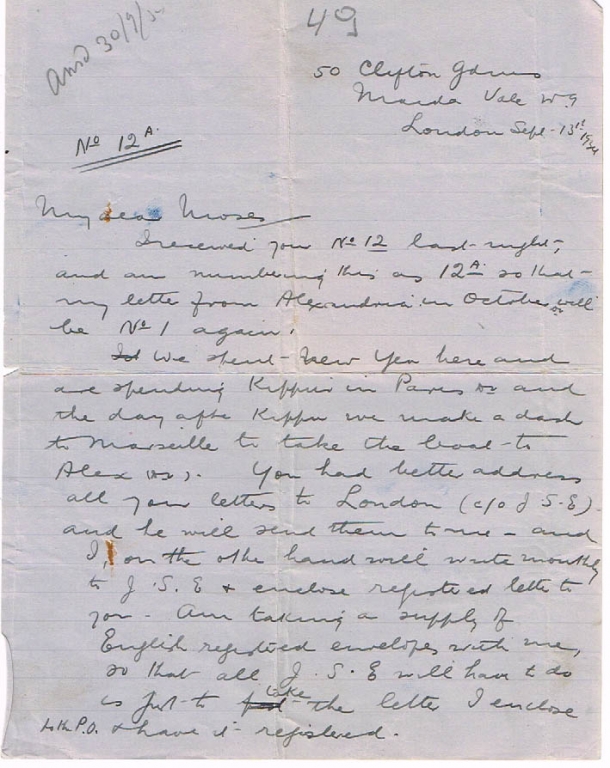 49
ansd 30/9/
50 Clifton Gdns
Maida Vale W.9
London Sept. 13th 1934
No 12 A.
My dear Moses
I received your No 12 last night,
and am numbering this as 12A. so that
my letter from Alexandria in October will
be No 1 again.
We spent New Year here and
are spending Kippur in Paris and
the day after Kippur we make a dash
to Marseille to take the boat to
Alex You had better address
all your letters to London (c/o J S.E)
and he will send them to me - and
I, on the other hand will write monthly
to J.S.E & enclose registered letter to
you. Am taking a supply of
English registered envelopes with me,
so that all J.S.E will have to do
is just to take the letter I enclose
to the P.O. & have it registered.